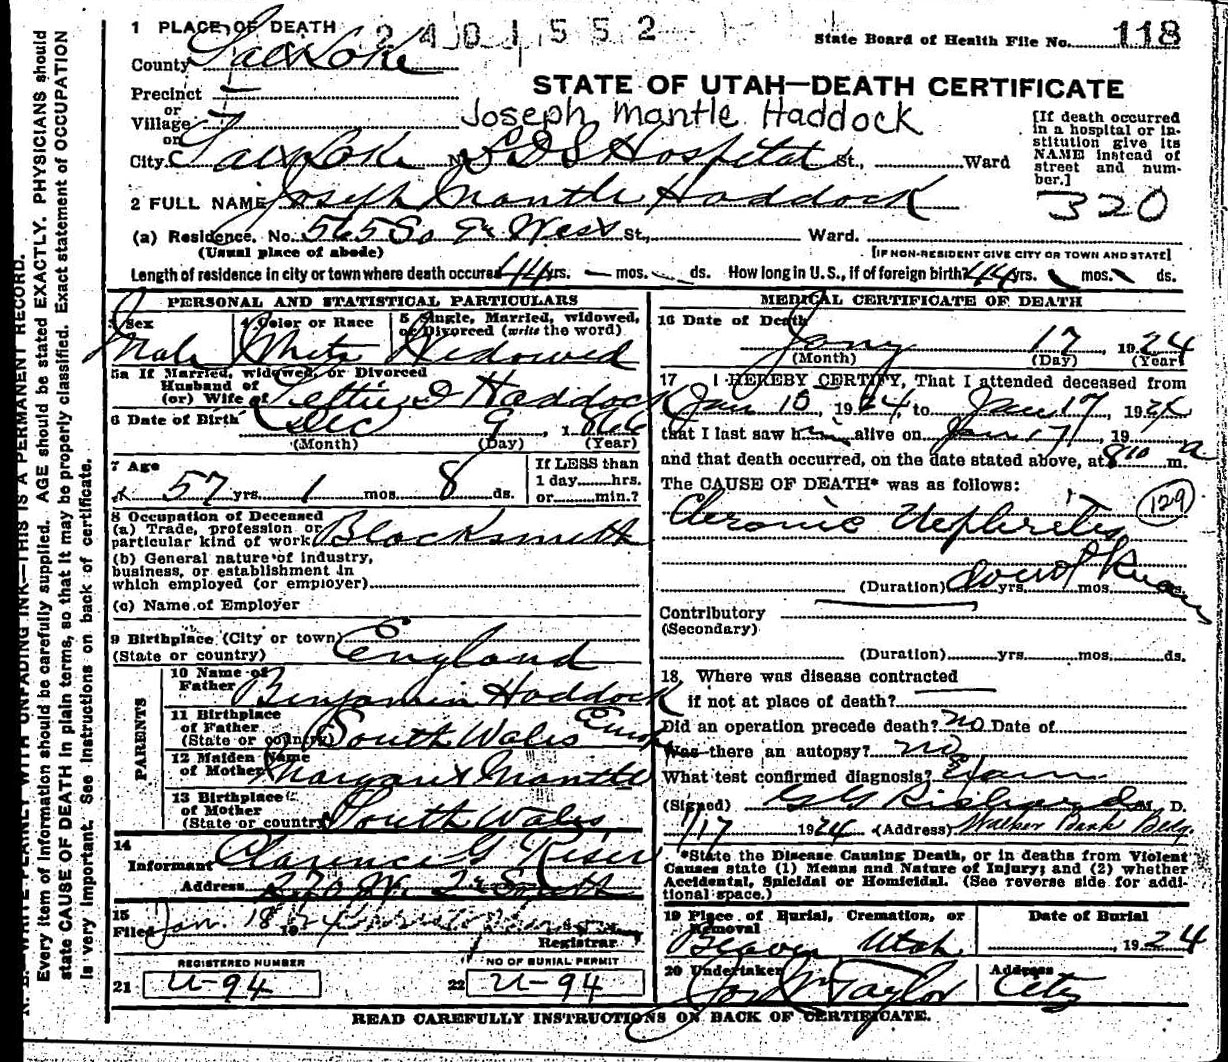 1 PLACE OF DEATH 2401552 State Board of Health File No. 118
County Salt Lake
STATE OF UTAH—DEATH CERTIFICATE
Precinct
or
Village
Joseph Mantle Haddock
or
City Salt Lake No. LDS Hospital St., Ward
[If death occurred in a hospital or institution give its NAME instead of street and number.]
320
2 FULL NAME Joseph Mantle Haddock
(a) Residence. No. 565 So 9th West St., Ward.
(Usual place of abode) [IF NON-RESIDENT GIVE CITY OR TOWN AND STATE]
Length of residence in city or town where death occured 44 yrs. — mos. ds. How long in U.S., if of foreign birth? 44 yrs. mos. ds.
PERSONAL AND STATISTICAL PARTICULARS
3 Sex 4 Color or Race 5 Single, Married, widowed, or Divorced (write the word)
Male White Widowed
5a If Married, widowed, or Divorced
Husband of
(or) Wife of Haddock
6 Date of Birth Dec 9, 1866
(Month) (Day) (Year)
7 Age 57 yrs. 1 mos. 8 ds.
If LESS than
1 day hrs.
or min.?
8 Occupation of Deceased
(a) Trade, profession or
particular kind of work Blacksmith
(b) General nature of industry,
business, or establishment in
which employed (or employer)
(c) Name of Employer
9 Birthplace (City or town)
(State or country) England
PARENTS
10 Name of
Father Benjamin Haddock
11 Birthplace
of Father
(State or country) South Wales
12 Maiden Name
of Mother Margaret Mantle
13 Birthplace
of Mother
(State or country) South Wales
14
Informant Clarence G Riser
Address 270 W. 2nd South
15
Filed Jan. 18 1924
Registrar
REGISTERED NUMBER NO OF BURIAL PERMIT
21 U-94 22 U-94
MEDICAL CERTIFICATE OF DEATH
16 Date of Death
Jany 17, 1924
(Month) (Day) (Year)
17 I HEREBY CERTIFY, That I attended deceased from
Jan 15, 1924, to Jan 17, 1924
that I last saw him alive on Jan 17, 19
and that death occurred, on the date stated above, at 8 10 a m.
The CAUSE OF DEATH* was as follows:
129
Chronic Nephritis
(Duration) yrs. mos.
Contributory
(Secondary)
(Duration) yrs. mos. ds.
18 Where was disease contracted
if not at place of death?
Did an operation precede death? no Date of
Was there an autopsy? no
What test confirmed diagnosis? Exam
(Signed) G G Richards M. D.
1/17 1924 (Address) Walker Bank Bldg.
*State the Disease Causing Death, or in deaths from Violent
Causes state (1) Means and Nature of Injury; and (2) whether
Accidental, Suicidal or Homicidal. (See reverse side for additional space.)
19 Place of Burial, Cremation, or
Removal Date of Burial
Beaver Utah , 1924
20 Undertaker Address
Jos Wm Taylor City
READ CAREFULLY INSTRUCTIONS ON BACK OF CERTIFICATE.
N. B.—WRITE PLAINLY WITH UNFADING INK—THIS IS A PERMANENT RECORD.
Every item of information should be carefully supplied. AGE should be stated EXACTLY. PHYSICIANS should
state CAUSE OF DEATH in plain terms, so that it may be properly classified. Exact statement of OCCUPATION
is very important. See instructions on back of certificate.